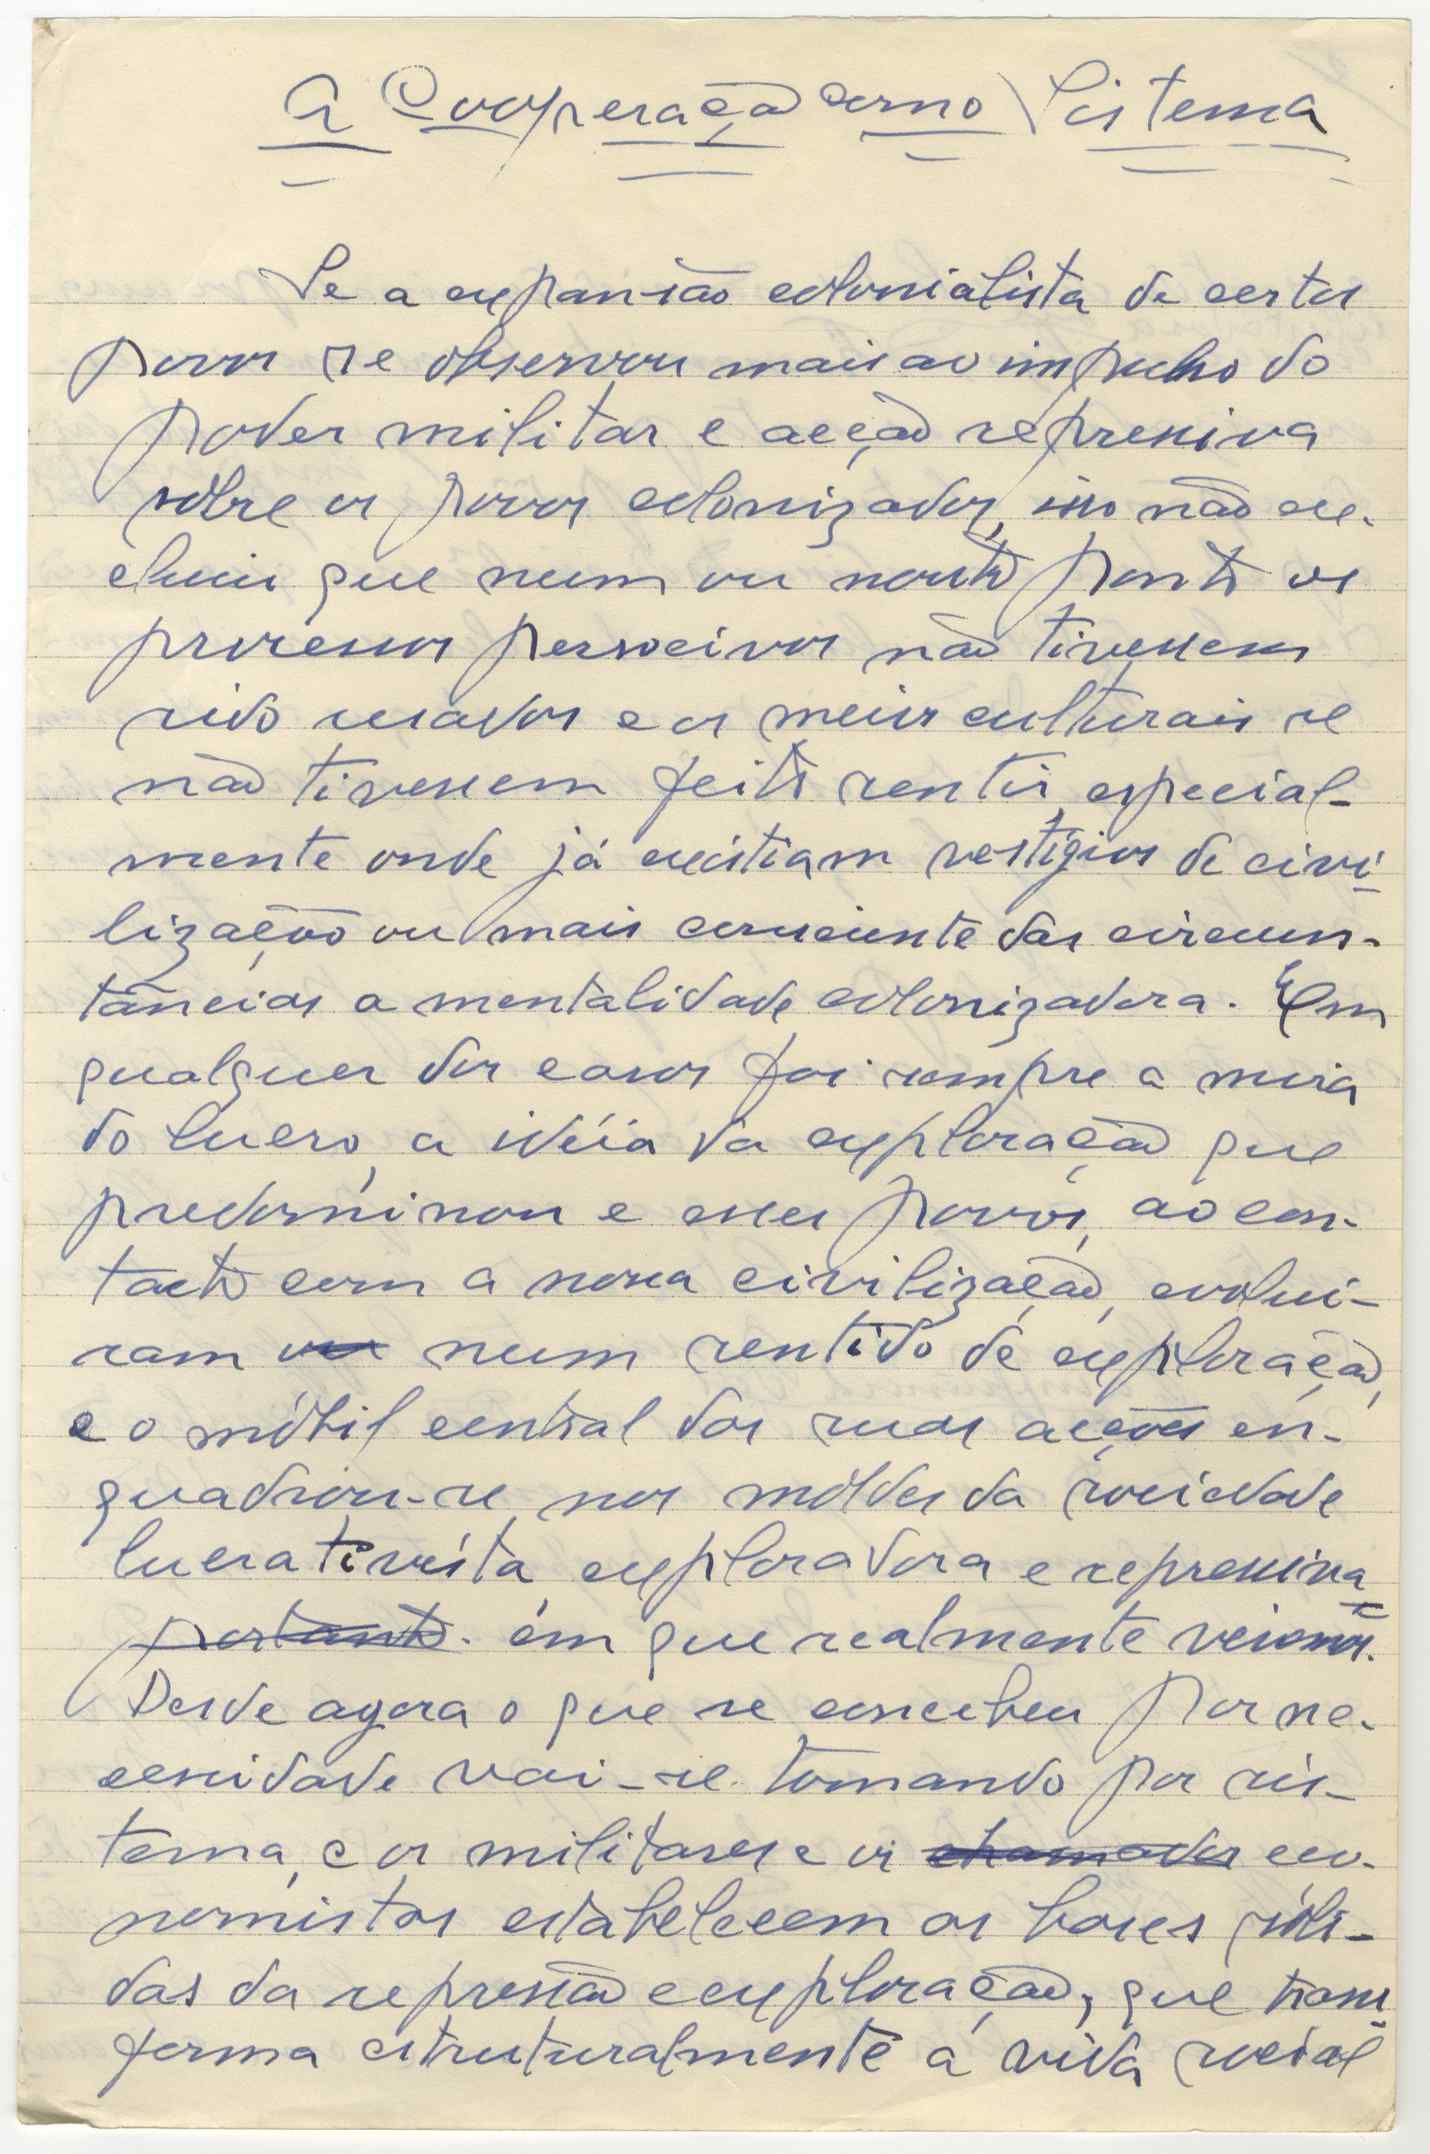 A Cooperação como Sistema
Se a expansão colonialista de certos
povos se observou mais ao impulso do
poder militar e acção repressiva
sôbre os povos colonizados, isso não ex-
cluiu que num ou noutro ponto os
processos persuasivos não tivessem
sido usados e os meios culturais se
não tivessem feito sentir, especial-
mente onde já existiam vestígios de civi-
lização ou mais consciente das circuns-
tâncias a mentalidade colonizadora. Em
qualquer dos casos foi sempre a mira
do lucro, a idéia da exploração que
predominou e esses povos, ao con-
tacto com a nossa civilização, evolui-
ram ou num sentido de exploração,
e o móbil central das suas acções en-
quadrou-se nos móldes da sociedade
lucrativista exploradora e repressiva
portanto. em que realmente vivemos.
Desde agora o que se concebeu por ne-
cessidade vai-se tomando por sis-
tema, e os militares e os chamados eco-
nomistas estabelecem as bases sóli-
das da repressão e exploração, que trans
forma estruturalmente a vida social